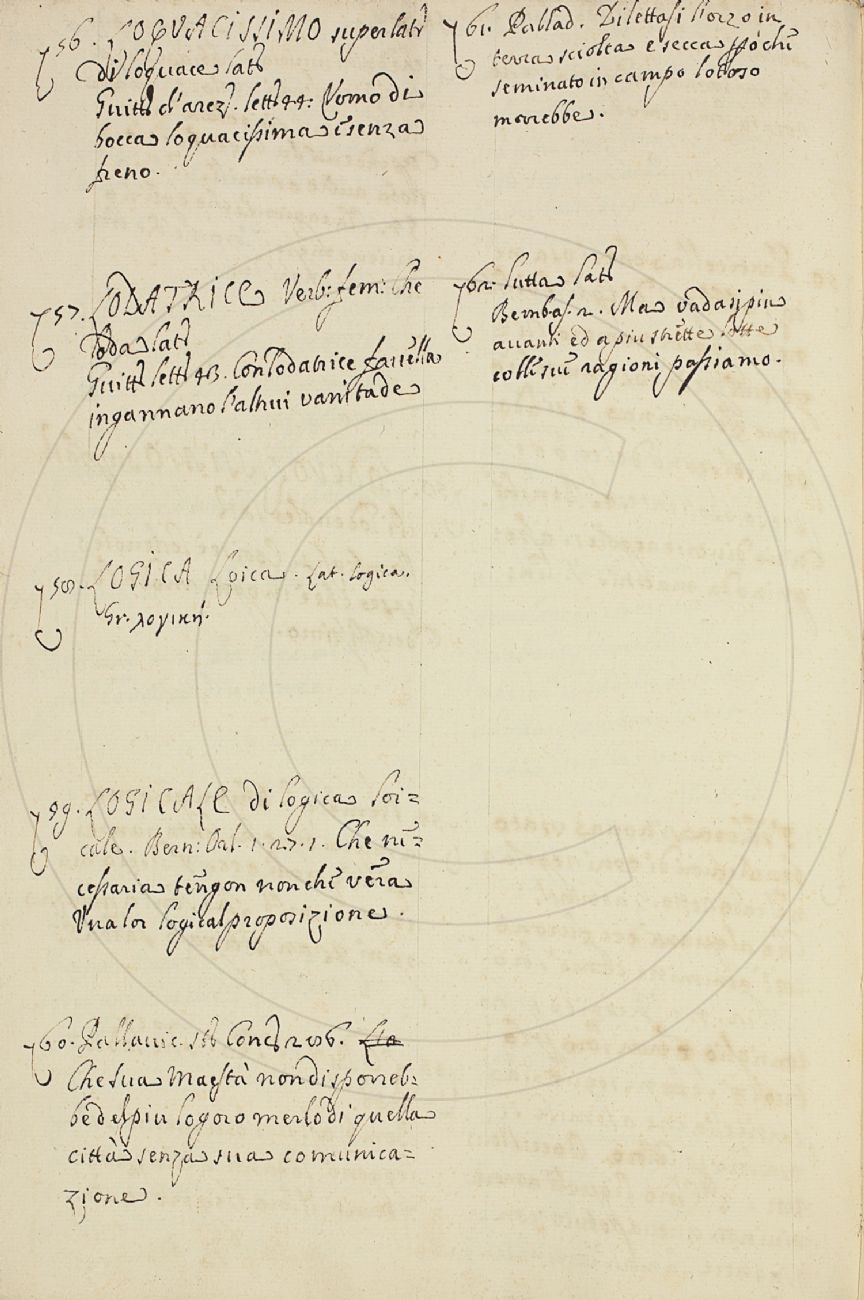 56. LOQUACISSIMO superlat:
di loquace lat:
Guitt: d'arez. lett: 44: Vomo di
bocca loquacissima e senza
freno.
57. LODATRICE Verb: fem: Che
loda lat:
Guitt: lett: 43. Con lodatrice favella
ingannano l'altrui vanitade
58. LOGICA Loica. Lat. logica.
Gr. λογική.
59. LOGICALE di logica loi=
cale. Bern: Orl. 1. 27. 1. Che ne=
cessaria tengon non che vera
Una lor logical proposizione.
60. Pallavic. st: Conc: 286.
Che sua Maestà non disporreb=
be del più logoro merlo di quella
città senza sua comunica=
zione.
61. Pallad. Dilettasi l'orzo in
terra sciolta e secca però che
seminato in campo lotoso
morrebbe.
62. lutta lat:
Bemb. as. 2. Ma vadasi più
avanti ed a più strette lotte
colle sue ragioni passiamo.